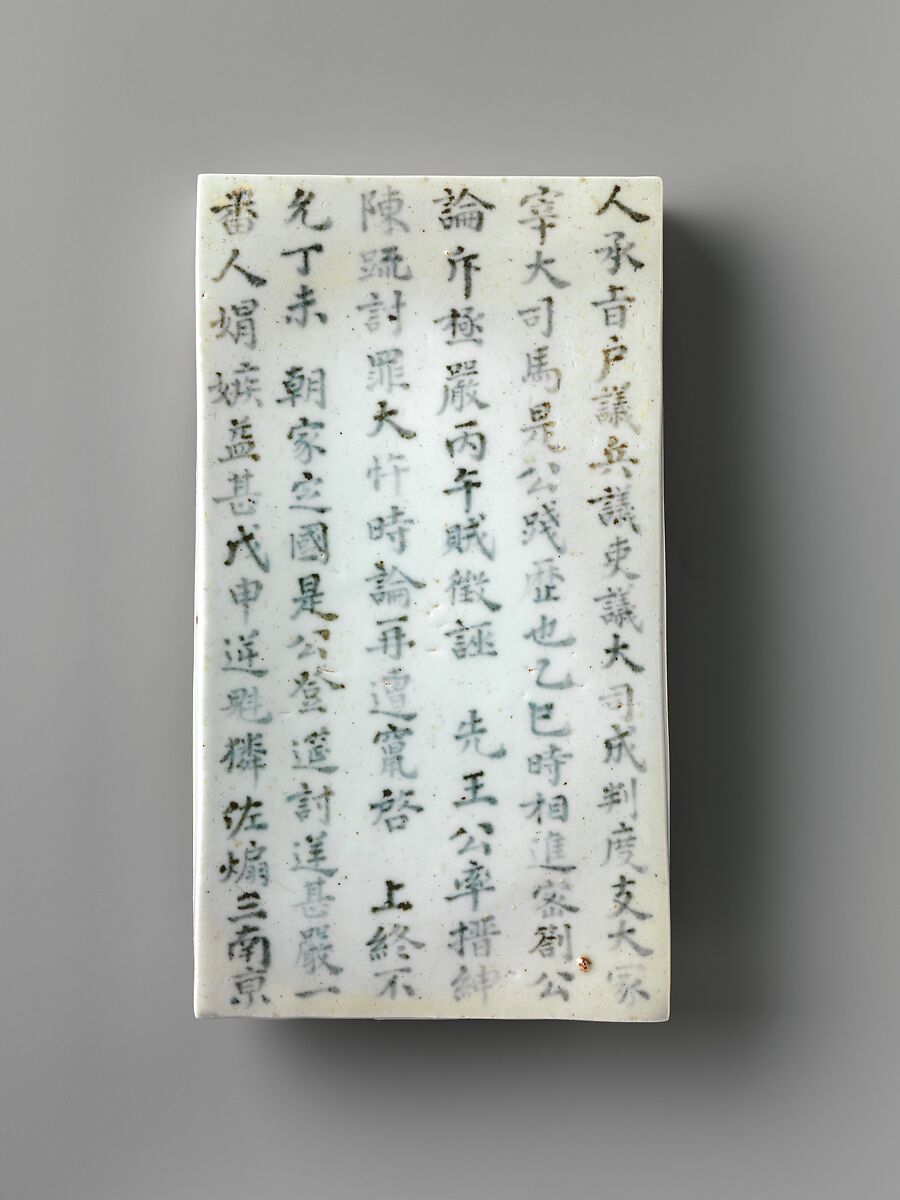 人承旨户議兵議吏議大司成判度支大冢
宰大司馬是公踐歷也乙巳時相進密劄公
論斥極嚴丙午賊徵誣 先王公率搢紳
陳䟽討罪大忤時論再遭竄啓 上終不
允丁未 朝家定國是公登筵討逆甚嚴一
番人娟嫉益甚戊申逆魁獜佐煽三南京